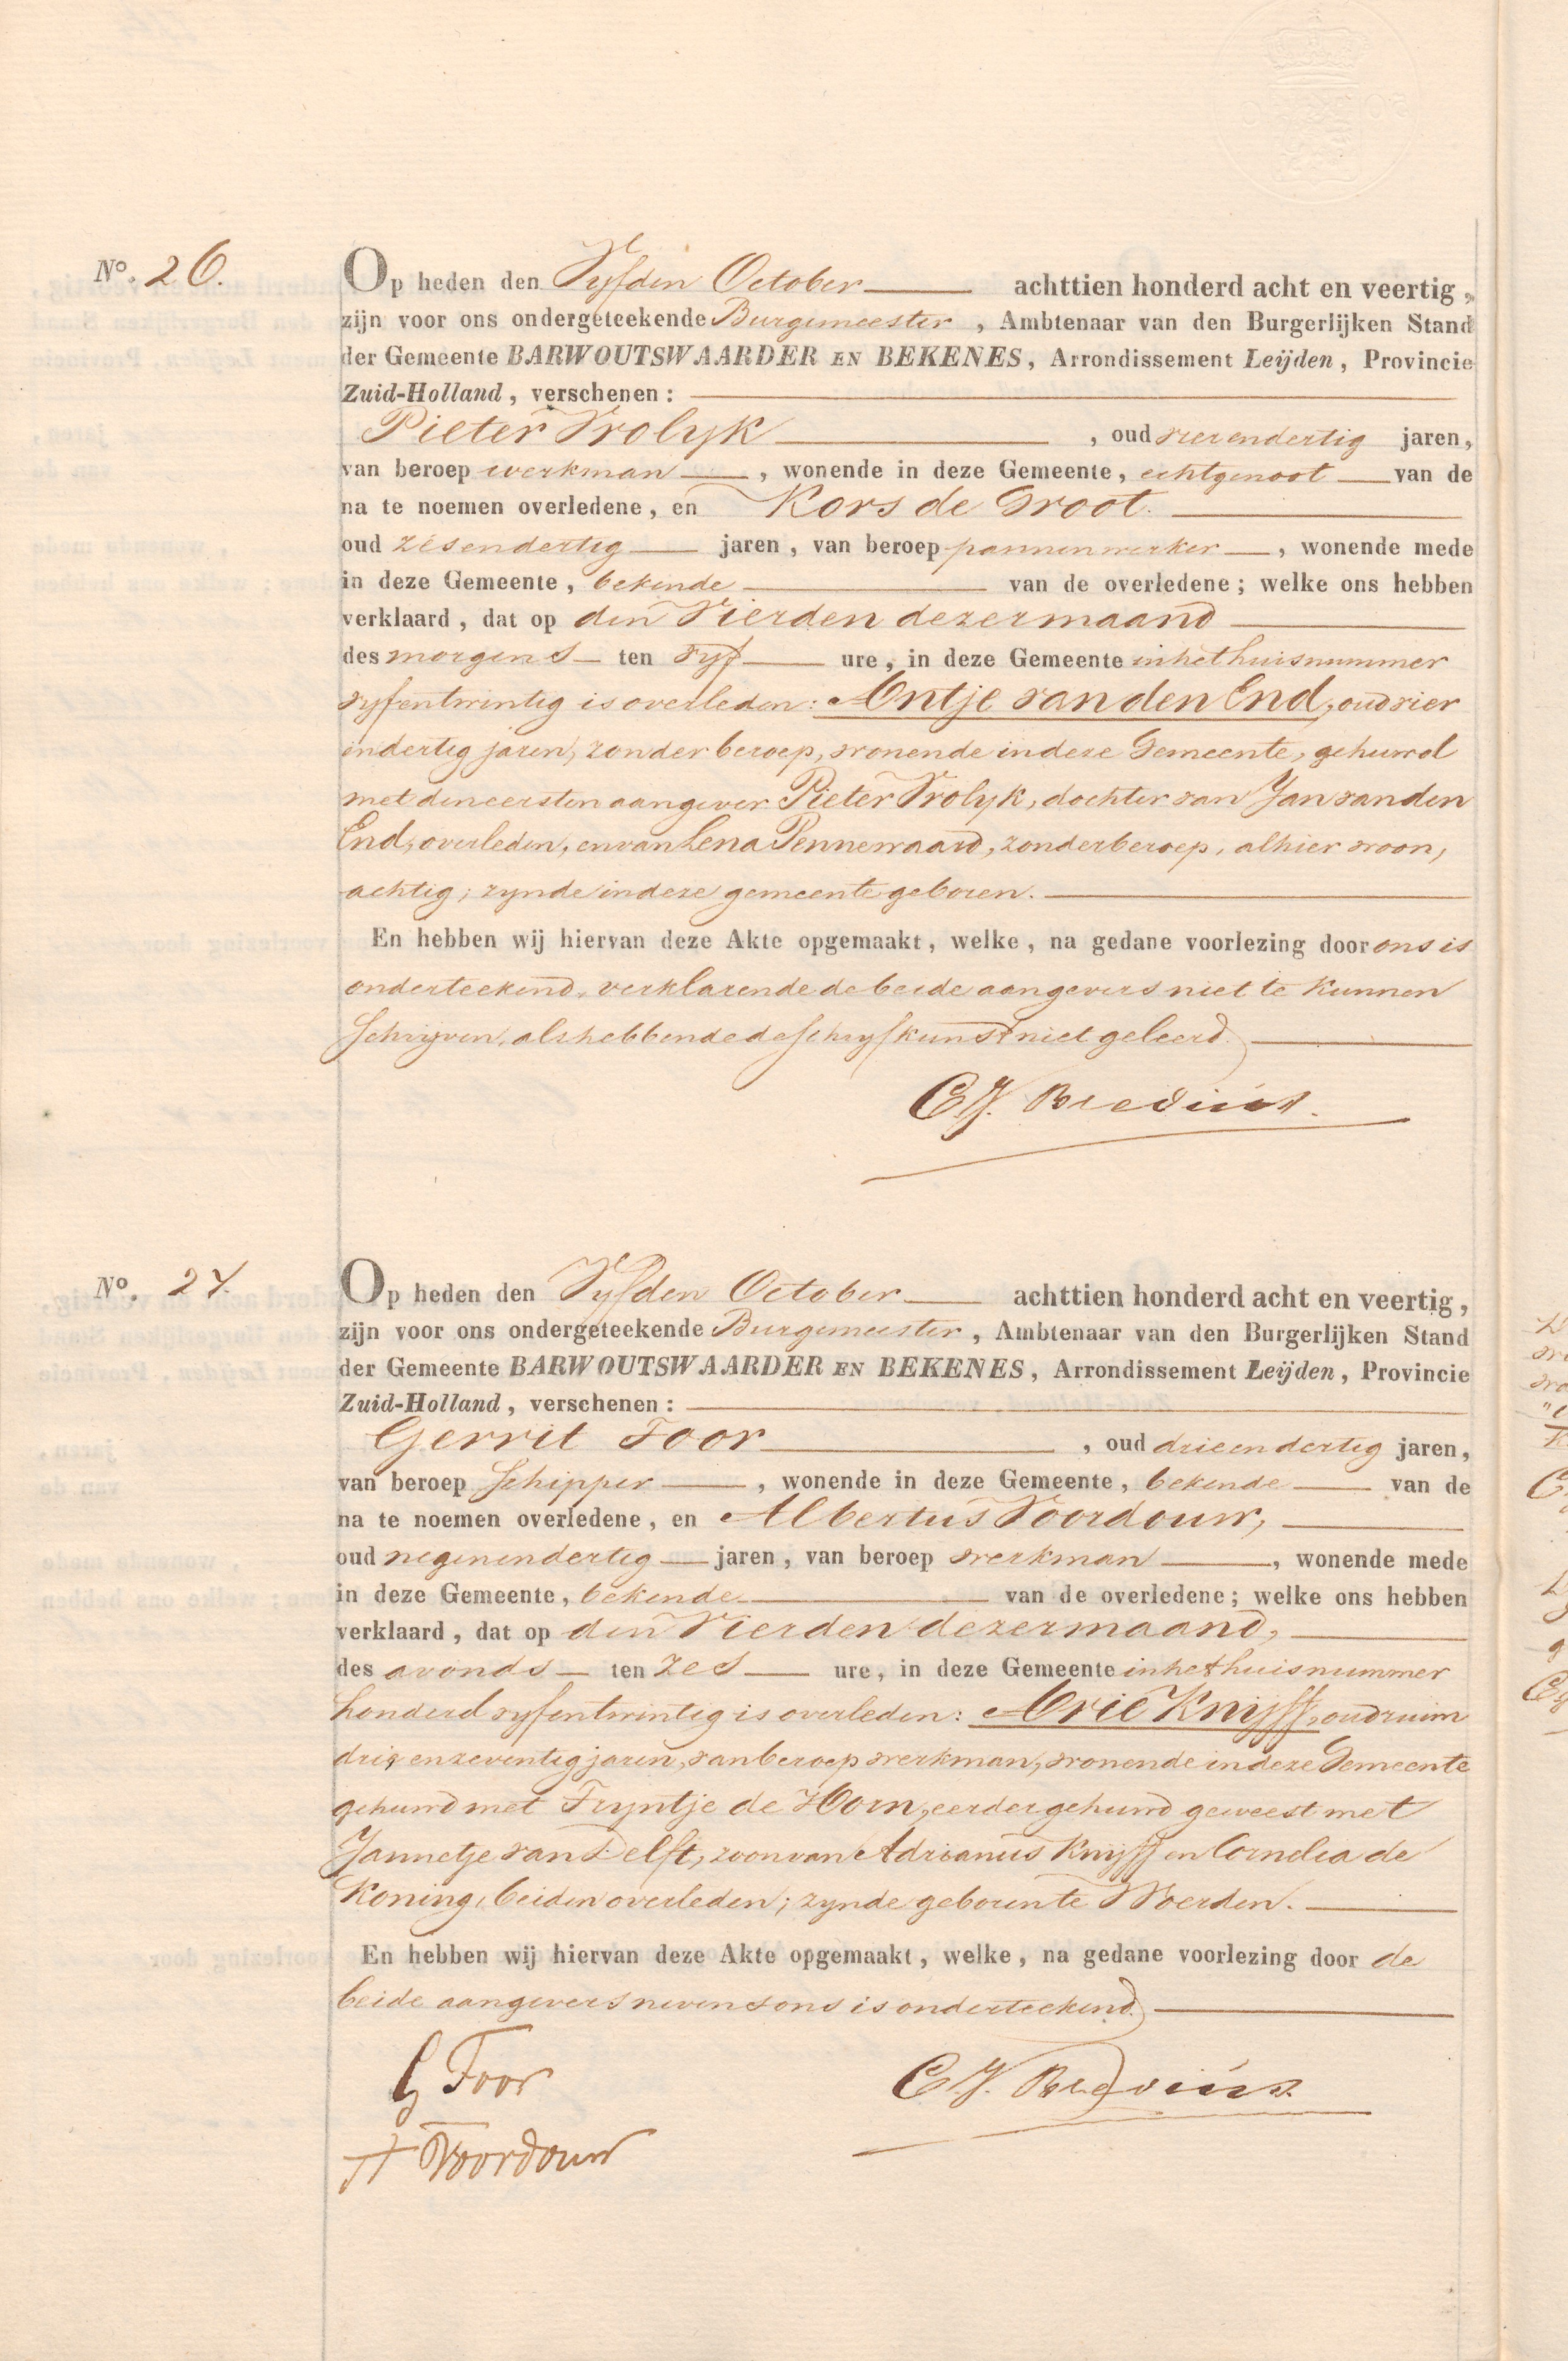 No. 26.
Op heden den Vyfden October achttien honderd acht en veertig,
zijn voor ons ondergeteekende Burgemeester, Ambtenaar van den Burgerlijken Stand
der Gemeente BARWOUTSWAARDER EN BEKENES, Arrondissement Leijden, Provincie
Zuid-Holland, verschenen:
Pieter Vrolyk, oud vierendertig jaren,
van beroep werkman, wonende in deze Gemeente, echtgenoot van de
na te noemen overledene, en Kors de Groot.
oud zesendertig jaren, van beroep pannenwerker, wonende mede
in deze Gemeente, bekende van de overledene; welke ons hebben
verklaard, dat op den Vierden dezermaand
des morgens ten vyf ure, in deze Gemeente in het huis nummer
vyfentwintig is overleden: Antje van den End, oud vier
endertig jaren, zonder beroep, wonende in deze Gemeente, gehuwd
met den eersten aangever Pieter Vrolyk, dochter van Jan van den
End, overleden, en van Lena Pennewaard, zonder beroep, alhier woon,
achtig; zynde in deze gemeente geboren.
En hebben wij hiervan deze Akte opgemaakt, welke, na gedane voorlezing door ons is
onderteekend, verklarende de beide aangevers niet te kunnen
schryven, als hebbende de schryfkunst niet geleerd.
C.J. Bredius.
No. 27.
Op heden den Vyfden October achttien honderd acht en veertig,
zijn voor ons ondergeteekende Burgemeester, Ambtenaar van den Burgerlijken Stand
der Gemeente BARWOUTSWAARDER EN BEKENES, Arrondissement Leijden, Provincie
Zuid-Holland, verschenen:
Gerrit Foor, oud drieendertig jaren,
van beroep Schipper, wonende in deze Gemeente, bekende van de
na te noemen overledene, en Albertus Voordouw,
oud negenendertig jaren, van beroep werkman, wonende mede
in deze Gemeente, bekende van de overledene; welke ons hebben
verklaard, dat op den Vierden dezermaand,
des avonds ten zes ure, in deze Gemeente in het huis nummer
honderd vyfentwintig is overleden: Arie Knijff, oud ruim
drie en zeventig jaren, van beroep werkman, wonende in deze Gemeente
gehuwd met Fryntje de Horn, eerder gehuwd geweest met
Jannetje van Delft, zoon van Adrianus Knijff en Cornelia de
Koning, beiden overleden; zynde geboren te Woerden.
En hebben wij hiervan deze Akte opgemaakt, welke, na gedane voorlezing door de
beide aangevers nevens ons is onderteekend.
G Foor
C.J. Bredius.
A Voordouw